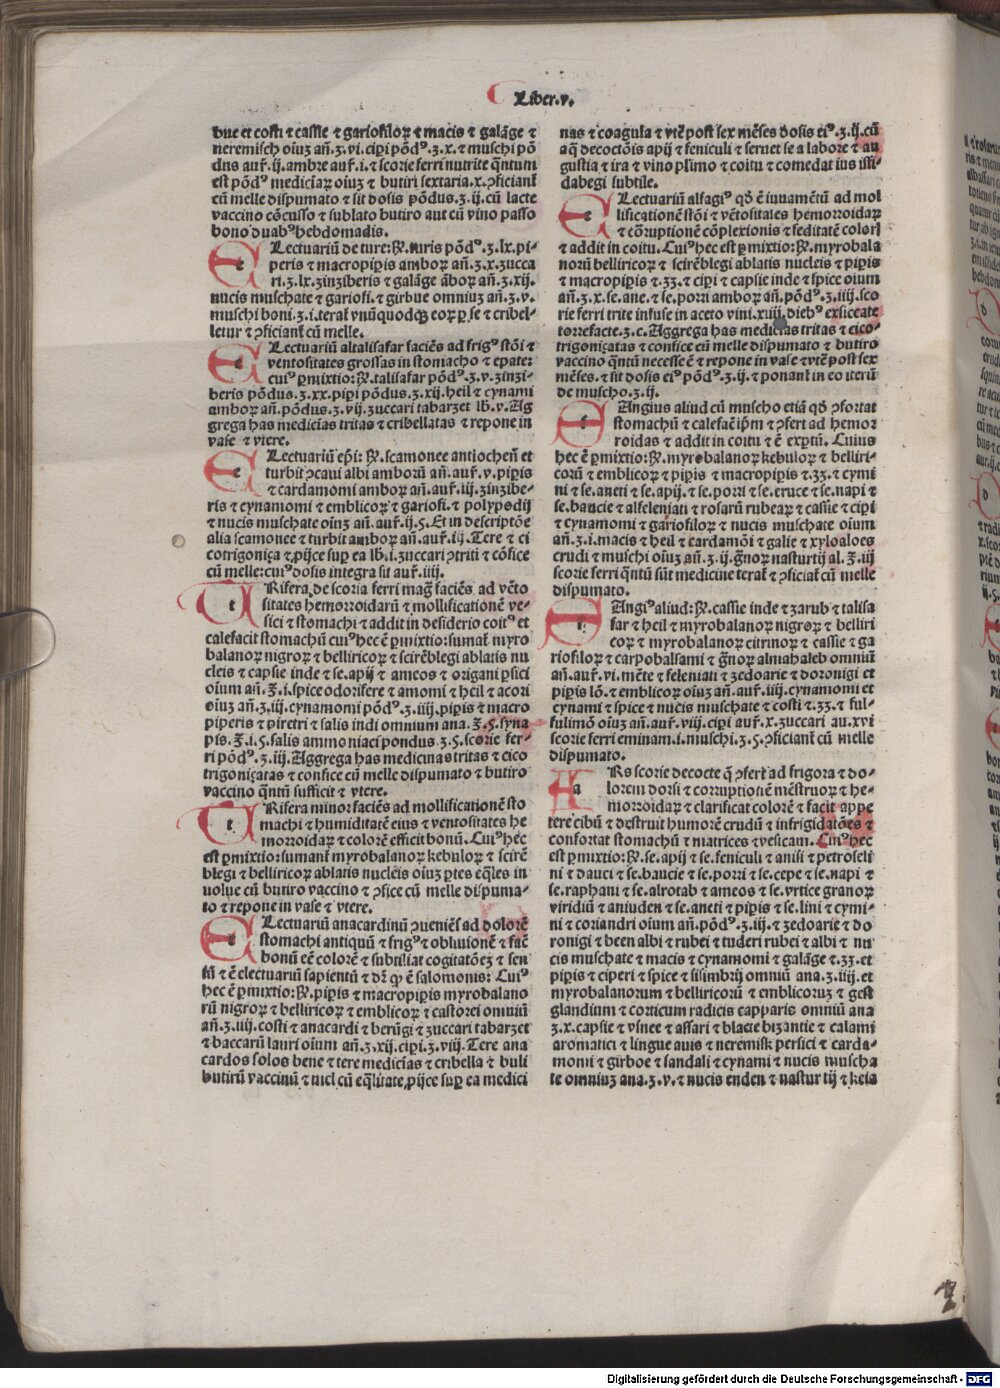 Liber.v.
bue et costi ⁊ cassie ⁊ gariofiloꝝ ⁊ macis ⁊ galāge ⁊
neremisch oiuꝫ añ.ʒ.vi.cipi põdꝰ.ʒ.x.⁊ muschi põ
dus aur̃.ij.ambre aur̃.i.⁊ scorie ferri nutrite q̃ntum
est põdꝰ mediciaꝝ oiuꝫ ⁊ butiri sextaria.x.ꝯficiant̃
cū melle dispumato ⁊ sit dosis põdus.ʒ.ij.cū lacte
vaccino cõcusso ⁊ sublato butiro aut cū vino passo
bono duabꝰ hebdomadis.
ELectuariū de ture:℞.turis põdꝰ.ʒ.lx.pi-
peris ⁊ macropip̱is amboꝝ añ.ʒ.x.zucca
ri.ʒ.lx.zinziberis ⁊ galāge āboꝝ añ.ʒ.xij.
nucis muschate ⁊ gariofi.⁊ girbue omniuꝫ añ.ʒ.v.
muschi boni.ʒ.i.terat̃ vnūquodqꝫ eoꝝ p̱ se ⁊ cribel-
letur ⁊ ꝯficiant̃ cū melle.
ELectuariū altalisafar faciēs ad frigꝰ stōi ⁊
ventositates grossas in stomacho ⁊ epate:
cuiꝰ p̱mixtio:℞.talisafar põdꝰ.ʒ.v.zinzi-
beris põdus.ʒ.xx.pipi põdus.ʒ.xij.heil ⁊ cynami
amboꝝ añ.põdus.ʒ.vij.zuccari tabarzet lb.v.Ag
grega has medicias tritas ⁊ cribellatas ⁊ repone in
vase ⁊ vtere.
ELectuariū ep̄i:℞.scamonee antiocheñ et
turbit ꝯcaui albi amborū añ.aur̃.v.pip̱is
⁊ cardamomi amboꝝ añ.aur̃.iij.zinzibe-
ris ⁊ cynamomi ⁊ emblicoꝝ ⁊ gariofi.⁊ polypodij
⁊ nucis muschate oiuꝫ añ.aur̃.ij.ꝭ.Et in descriptōe
alia scamonee ⁊ turbit amboꝝ añ.aur̃.ij.Tere ⁊ ci
cotrigoniça ⁊ ꝓijce sup̱ ea lb.i.zuccari ꝯtriti ⁊ cõfice
cū melle:cuiꝰ dosis integra sit aur̃.iiij.
TRifera de scoria ferri mag̃ faciēs ad vēto
sitates hemorroidarū ⁊ mollificationē ve-
sici ⁊ stomachi ⁊ addit in desiderio coitꝰ et
calefacit stomachū cuiꝰ hec ē p̱mixtio:sumat̃ myro
balanoꝝ nigroꝝ ⁊ belliricoꝝ ⁊ scirēblegi ablatis nu
cleis ⁊ capsie inde ⁊ se.apij ⁊ ameos ⁊ origani p̱sici
oium añ.℥.i.spice odorifere ⁊ amomi ⁊ heil ⁊ acori
oiuꝫ añ.ʒ.iij.cynamomi põdꝰ.ʒ.iiij.pip̱is ⁊ macro
piperis ⁊ piretri ⁊ salis indi omnium ana.℥.ꝭ.syna
pis.℥.i.ꝭ.salis ammoniaci pondus.ʒ.ꝭ.scorie fer-
ri põdꝰ.ʒ.iij.Aggrega has medicinas tritas ⁊ cico
trigoniçatas ⁊ confice cū melle dispumato ⁊ butiro
vaccino q̃ntū sufficit ⁊ vtere.
TRifera minor faciēs ad mollificationē sto
machi ⁊ humiditatē eius ⁊ ventositates he
morroidaꝝ ⁊ colorē efficit bonū.Cuiꝰ hec
est p̱mixtio:sumant̃ myrobalanoꝝ kebuloꝝ ⁊ scirē
blegi ⁊ belliricoꝝ ablatis nucleis oiuꝫ p̱tes eq̃les in
uolue cū butiro vaccino ⁊ ꝯfice cū melle dispuma-
to ⁊ repone in vase ⁊ vtere.
ELectuariū anacardinū ꝯueniēs ad dolorē
stomachi antiquū ⁊ frigꝰ ⁊ obliuionē ⁊ fac̃
bonū eē colorē ⁊ subtiliat cogitatōeꝫ ⁊ sen
sū ⁊ ē electuariū sapientū ⁊ dr̃ ꝙ ē salomonis: Cuiꝰ
hec ē p̱mixtio:℞.pip̱is ⁊ macropip̱is myrobalano
rū nigroꝝ ⁊ belliricoꝝ ⁊ emblicoꝝ ⁊ castorei omniū
añ.ʒ.iiij.costi ⁊ anacardi ⁊ berūgi ⁊ zuccari tabarzet
⁊ baccarū lauri oium añ.ʒ.xij.cipi.ʒ.viij.Tere ana
cardos solos bene ⁊ tere medicīas ⁊ cribella ⁊ buli
butirū vaccinū ⁊ mel cū eq̃litate ꝓijce sup̱ ea medici
nas ⁊ coagula ⁊ vtē post sex mēses dosis eiꝰ.ʒ.ij.cū
aq̃ decoctōis apij ⁊ feniculi ⁊ seruet se a labore ⁊ an
gustia ⁊ ira ⁊ vino pl̃imo ⁊ coitu ⁊ comedat ius isfi-
dabegi subtile.
ELectuariū alfagiꝰ qđ ē iuuamētū ad mol
lificationē stōi ⁊ vētositates hemorroidaꝝ
⁊ cōruptionē cōplexionis ⁊ feditatē coloris
⁊ addit in coitu. Cuiꝰ hec est p̱mixtio:℞.myrobala
norū belliricoꝝ ⁊ scirēblegi ablatis nucleis ⁊ pip̱is
⁊ macropip̱is ⁊.ʒʒ.⁊ cipi ⁊ capsie inde ⁊ spice oium
añ.ʒ.x.se.ane.⁊ se.porri amboꝝ añ.põdꝰ.ʒ.iiij.sco
rie ferri trite infuse in aceto vini.xiiij.diebꝰ exsiccate
torrefacte.ʒ.c.Aggrega has medicias tritas ⁊ cico-
trigoniçatas ⁊ confice cū melle dispumato ⁊ butiro
vaccino q̃ntū necesse ē ⁊ repone in vase ⁊ vtē post sex
mēses.⁊ sit dosis eiꝰ põdꝰ.ʒ.ij.⁊ ponant̃ in eo iterū
de muscho.ʒ.ij.
FAngius aliud cū muscho etiā qđ ꝯfortat
stomachū ⁊ calefac̃ ip̄m ⁊ ꝯfert ad hemor
roidas ⁊ addit in coitu ⁊ ē exp̱tū. Cuius
hec ē p̱mixtio:℞.myrobalanoꝝ kebuloꝝ ⁊ belliri-
corū ⁊ emblicoꝝ ⁊ pip̱is ⁊ macropip̱is ⁊.ʒʒ.⁊ cymi
ni ⁊ se.aneti ⁊ se.apij.⁊ se.porri ⁊ se.eruce ⁊ se.napi ⁊
se.baucie ⁊ alseleniati ⁊ rosarū rubeaꝝ ⁊ cassie ⁊ cipi
⁊ cynamomi ⁊ gariofiloꝝ ⁊ nucis muschate oium
añ.ʒ.i.macis ⁊ heil ⁊ cardamōi ⁊ galie ⁊ xyloaloes
crudi ⁊ muschi oiuꝫ añ.ʒ.ij.g̃noꝝ nasturtij al.℥.iij
scorie ferri q̃ntū sūt medicine terat̃ ⁊ ꝯficiat̃ cū melle
dispumato.
FAngiꝰ aliud:℞.cassie inde ⁊ zarub ⁊ talisa
far ⁊ heil ⁊ myrobalanoꝝ nigroꝝ ⁊ belliri
coꝝ ⁊ myrobalanoꝝ citrinoꝝ ⁊ cassie ⁊ ga
riofiloꝝ ⁊ carpobalsami ⁊ g̃noꝝ almahaleb omniū
añ.aur̃.vi.mēte ⁊ seleniati ⁊ zedoarie ⁊ doronigi et
pip̱is lō.⁊ emblicoꝝ oiuꝫ añ.aur̃.iiij.cynamomi et
cynami ⁊ spice ⁊ nucis muschate ⁊ costi ⁊.ʒʒ.⁊ ful-
fulimō oiuꝫ añ.aur̃.viij.cipi aur̃.x.zuccari au.xvi
scorie ferri eminam.i.muschi.ʒ.ꝭ.ꝯficiant̃ cū melle
dispumato.
HAs scorie decocte q̃ ꝯfert̃ ad frigora ⁊ do-
lorem dorsi ⁊ corruptionē mēstruoꝝ ⁊ he-
morroidaꝝ ⁊ clarificat colorē ⁊ facit appe
tere cibū ⁊ destruit humorē crudū ⁊ infrigidatōes ⁊
confortat stomachū ⁊ matrices ⁊ vesicam. Cuiꝰ hec
est p̱mixtio:℞.se.apij ⁊ se.feniculi ⁊ anisi ⁊ petroseli
ni ⁊ dauci ⁊ se.baucie ⁊ se.porri ⁊ se.cepe ⁊ se.napi ⁊
se.raphani ⁊ se.alrotab ⁊ ameos ⁊ se.vrtice granoꝝ
viridiū ⁊ aniuden ⁊ se.aneti ⁊ pip̱is ⁊ se.lini ⁊ cymi-
ni ⁊ coriandri oium añ.põdꝰ.ʒ.iij.⁊ zedoarie ⁊ do
ronigi ⁊ been albi ⁊ rubei ⁊ tuderi rubei ⁊ albi ⁊ nu
cis muschate ⁊ macis ⁊ cynamomi ⁊ galāge ⁊.ʒʒ.et
pip̱is ⁊ ciperi ⁊ spice ⁊ sisimbrij omniū ana.ʒ.iiij.et
myrobalanorum ⁊ belliricorū ⁊ emblicoruꝫ ⁊ gest
glandium ⁊ corticum radicis capparis omniū ana
ʒ.x.capsie ⁊ vsnee ⁊ assari ⁊ blacte bizantie ⁊ calami
aromatici ⁊ lingue auis ⁊ neremisk persici ⁊ carda-
momi ⁊ girboe ⁊ sandali ⁊ cynami ⁊ nucis muscha
te omniuꝫ ana.ʒ.v.⁊ nucis enden ⁊ nasturtij ⁊ keia
Digitalisierung gefördert durch die Deutsche Forschungsgemeinschaft - DFG